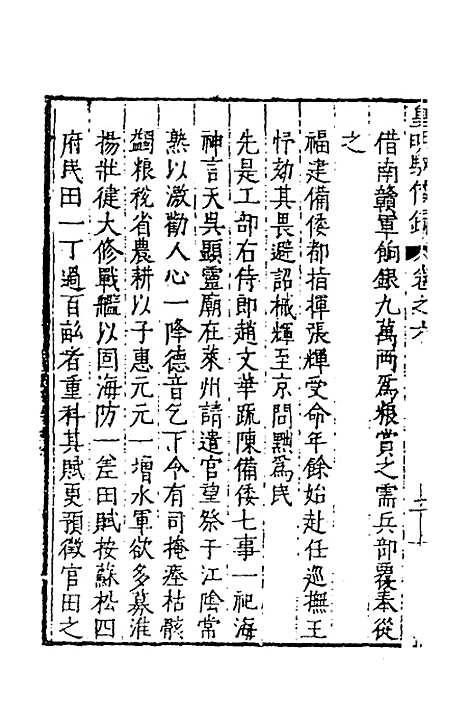 皇明馭倭錄 卷之六
借南贛軍餉銀九萬兩爲粮賞之需兵部覆奉從
之
福建備倭都指揮張輝受命年餘始赴任巡撫王
忬劾其畏避詔械輝至京問黜爲民
先是工部右侍郎趙文華疏陳備倭七事一祀海
神言天吳顯靈廟在萊州請遣官望祭于江陰常
熟以激勸人心一降德音乞下令有司掩瘞枯骸
蠲粮稅省農耕以子惠元元一增水軍欲多募淮
揚壯徤大修戰艦以固海防一差田賦按蘇松四
府民田一丁過百畝者重科其賦更預徵官田之